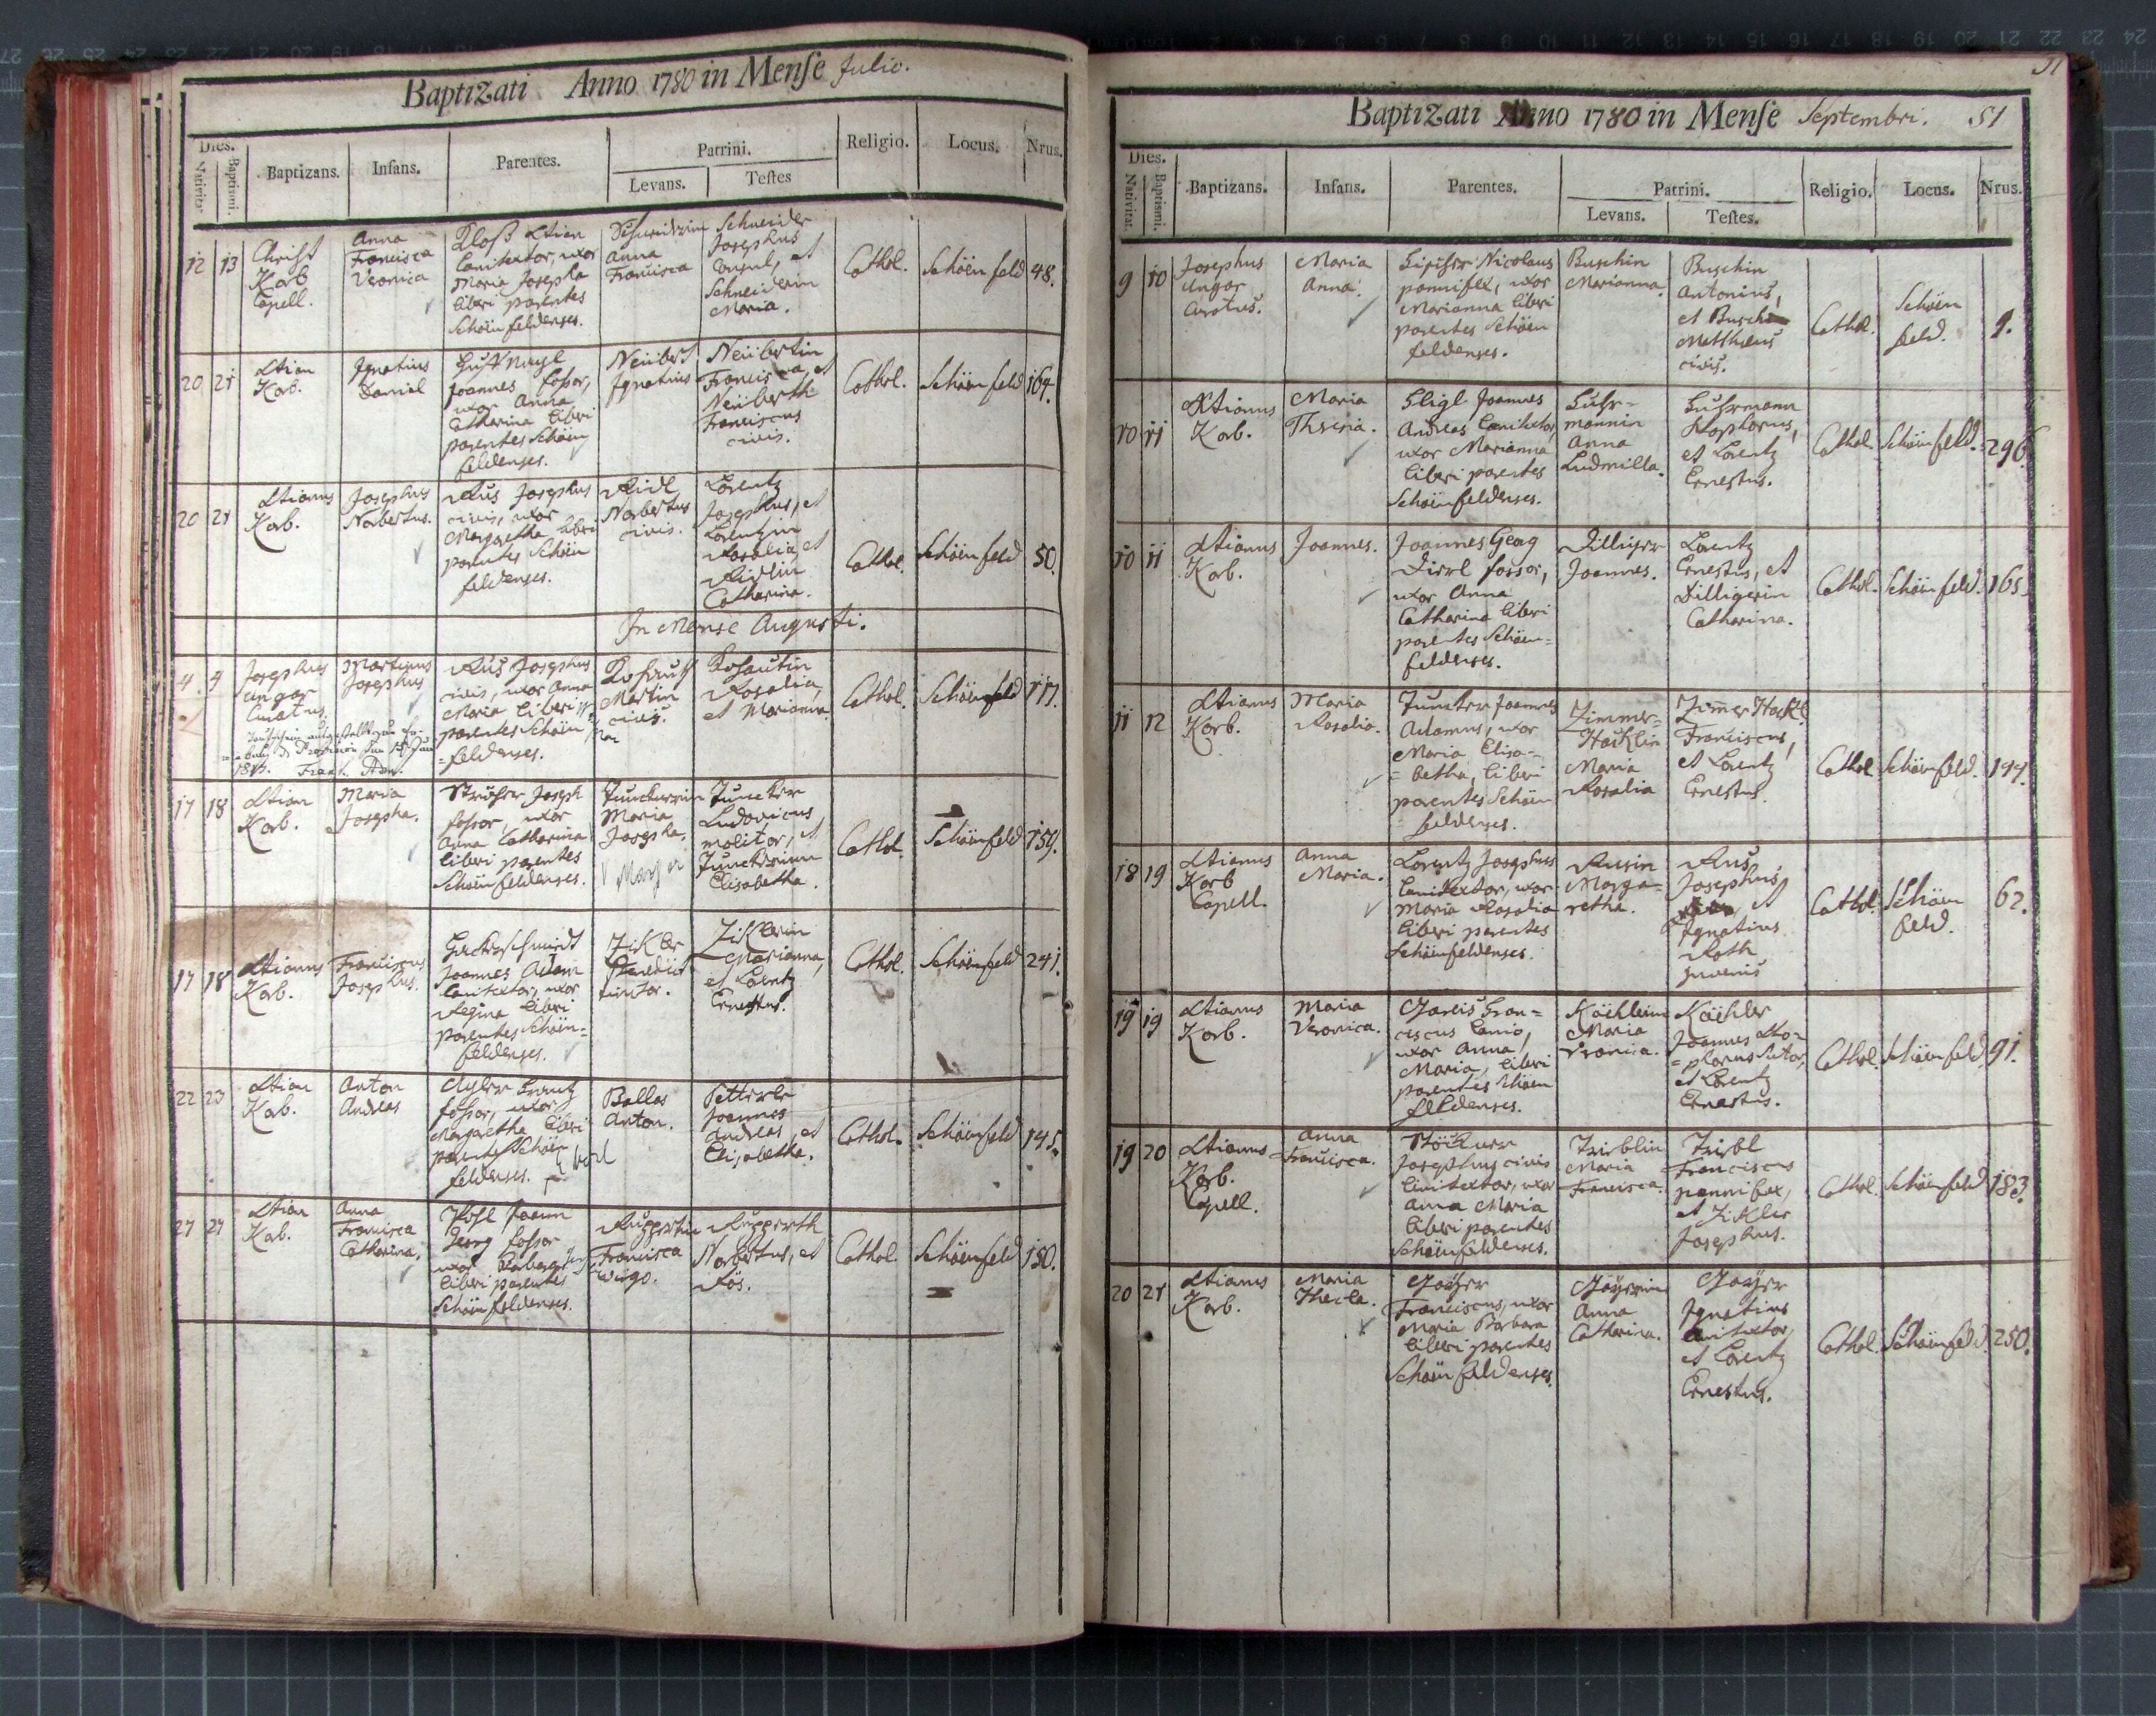 Baptizati Anno 1780 in Mense Julio.
Dies.
Nativitat. Baptismi. Baptizans. Infans. Parentes. Patrini. Religio. Locus. Nrus.
Levans. Testes
12 13 Christ
Korb
Capell.
Anna
Francisca
Veronica
Xtian
uxor
Maria Josepha
liberi parentes
Schöinfeldenses.
Anna
Francisca
Schneider
Josephus
Consul, et
Schneiderin
Maria.
Cathol. Schöinfeld 48.
20 21 Xtian
Korb.
Ignatius
Daniel
Joannes fossor,
uxor Anna
Catharina liberi
parentes Schöin
feldenses.
Neübert
Ignatius
Neübertin
Francisca, et
Neüberth
Franciscus
civis.
Cathol. Schöinfeld 164.
20 21 Xtianus
Korb.
Josephus
Norbertus.
Rus Josephus
civis, uxor
Margaretha liberi
parentes Schöin
feldenses.
Ridl
Norbertus
civis.
Lorentz
Josephus, et
Lorentzin
Rosalia, et
Ridlin
Catharina.
Cathol. Schöinfeld 50.
In Mense Augusti.
4. 4 Josephus
Ungar
Curatus.
Martinus
Josephus
Rus Josephus
civis, uxor Anna
Maria liberi
parentes Schöin
=feldenses.
Martin
civis.
Rosalia,
et Marianna
Cathol. Schöinfeld 117.
17 18 Xtian
Korb.
Maria
Josepha.
Ströher Joseph
fossor, uxor
Anna Catharina
liberi parentes
Schöinfeldenses.
Junckerrin
Maria
Josepha.
Juncker
Ludovicus
molitor, et
Junckerinn
Elisabetha.
Cathol. Schöinfeld 159.
17 18 Xtianus
Korb.
Franciscus
Josephus.
Joannes Adam
uxor
Regina liberi
parentes Schöin=
feldenses.
Zikler
Benedict
tinctor.
Ziklerin
Marianna,
et Lorentz
Ernestus.
Cathol. Schöinfeld 241.
22 23 Xtian
Korb.
Anton
Andreas
fossor, uxor
Margaretha liberi
parentes Schöin
feldenses.
Ballas
Anton.
Petterle
Joannes
Andreas, et
Elisabetha.
Cathol. Schöinfeld 145.
27 27 Xtian
Korb.
Anna
Francisca
Catharina.
Georg fossor
uxor Barbara
liberi parentes
Schöinfeldenses.
Ruppertin
Francisca
virgo.
Rupperth
Norbertus, et
Rös.
Cathol. Schöinfeld 150.
51
Baptizati Anno 1780 in Mense Septembri. 51
Dies.
Nativitat. Baptismi. Baptizans. Infans. Parentes. Patrini. Religio. Locus. Nrus.
Levans. Testes.
9 10 Josephus
Ungar
Curatus.
Maria
Anna.
Nicolaus
pannifex, uxor
Marianna liberi
parentes Schöin
feldenses.
Buschin
Marianna.
Buschin
Antonius,
et Busch
Matthæus
civis.
Cathol. Schöin
feld. 9.
10 11 Xtianus
Korb.
Maria
Theresia.
Joannes
Andreas
uxor Marianna
liberi parentes
Schöinfeldenses.
Fuhr=
mannin
Anna
Ludmilla.
Fuhrmann
et Lorentz
Ernestus.
Cathol. Schöinfeld. 296.
10 11 Xtianus
Korb.
Joannes.
Joannes Georg
fossor,
uxor Anna
Catharina liberi
parentes Schöin=
feldenses.
Dilliger
Joannes.
Lorentz
Ernestus, et
Dilligerin
Catharina.
Cathol. Schöinfeld. 165.
11 12 Xtianus
Korb.
Maria
Rosalia.
Juncker Joannes
Adamus, uxor
Maria Elisa=
=betha, liberi
parentes Schöin
=feldenses.
Zimmer=
Hacklin
Maria
Rosalia
Zimer Hackl
Franciscus,
et Lorentz
Ernestus.
Cathol. Schöinfeld. 194.
18 19 Xtianus
Korb
Capell.
Anna
Maria.
Lorentz Josephus
uxor
Maria Rosalia
liberi parentes
Schöinfeldenses.
Rusin
Marga=
retha.
Rus
Josephus
et
Ignatius
Roth
juvenis
Cathol. Schöin
feld. 62.
19 19 Xtianus
Korb.
Maria
Veronica.
Gareis Fran=
ciscus lanio,
uxor Anna
Maria, liberi
parentes Schöin
feldenses.
Köehlerin
Maria
Veronica.
Köehler
Joannes
sutor,
et Lorentz
Ernestus.
Cathol. Schöinfeld. 91.
19 20 Xtianus
Korb.
Capell.
Anna
Francisca.
Josephus civis
uxor
Anna Maria
liberi parentes
Schöinfeldenses.
Maria
Francisca.
Franciscus
pannifex,
et Zikler
Josephus.
Cathol. Schöinfeld 183.
20 21 Xtianus
Korb.
Maria
Thecla.
Gayer
Franciscus, uxor
Maria Barbara
liberi parentes
Schöinfeldenses.
Gayerin
Anna
Catharina.
Gayer
Ignatius
et Lorentz
Ernestus.
Cathol. Schöinfeld. 250.